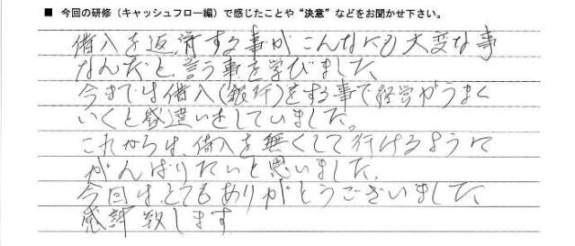 ■ 今回の研修（キャッシュフロー編）で感じたことや“決意”などをお聞かせ下さい。
借入を返済する事がこんなにも大変な事
なんだと言う事を学びました。
今までは借入(銀行)をする事で経営がうまく
いくと勘違いをしていました。
これからは、借入を無くして行けるように
がんばりたいと思いました。
今回はとてもありがとうございました。
感謝致します